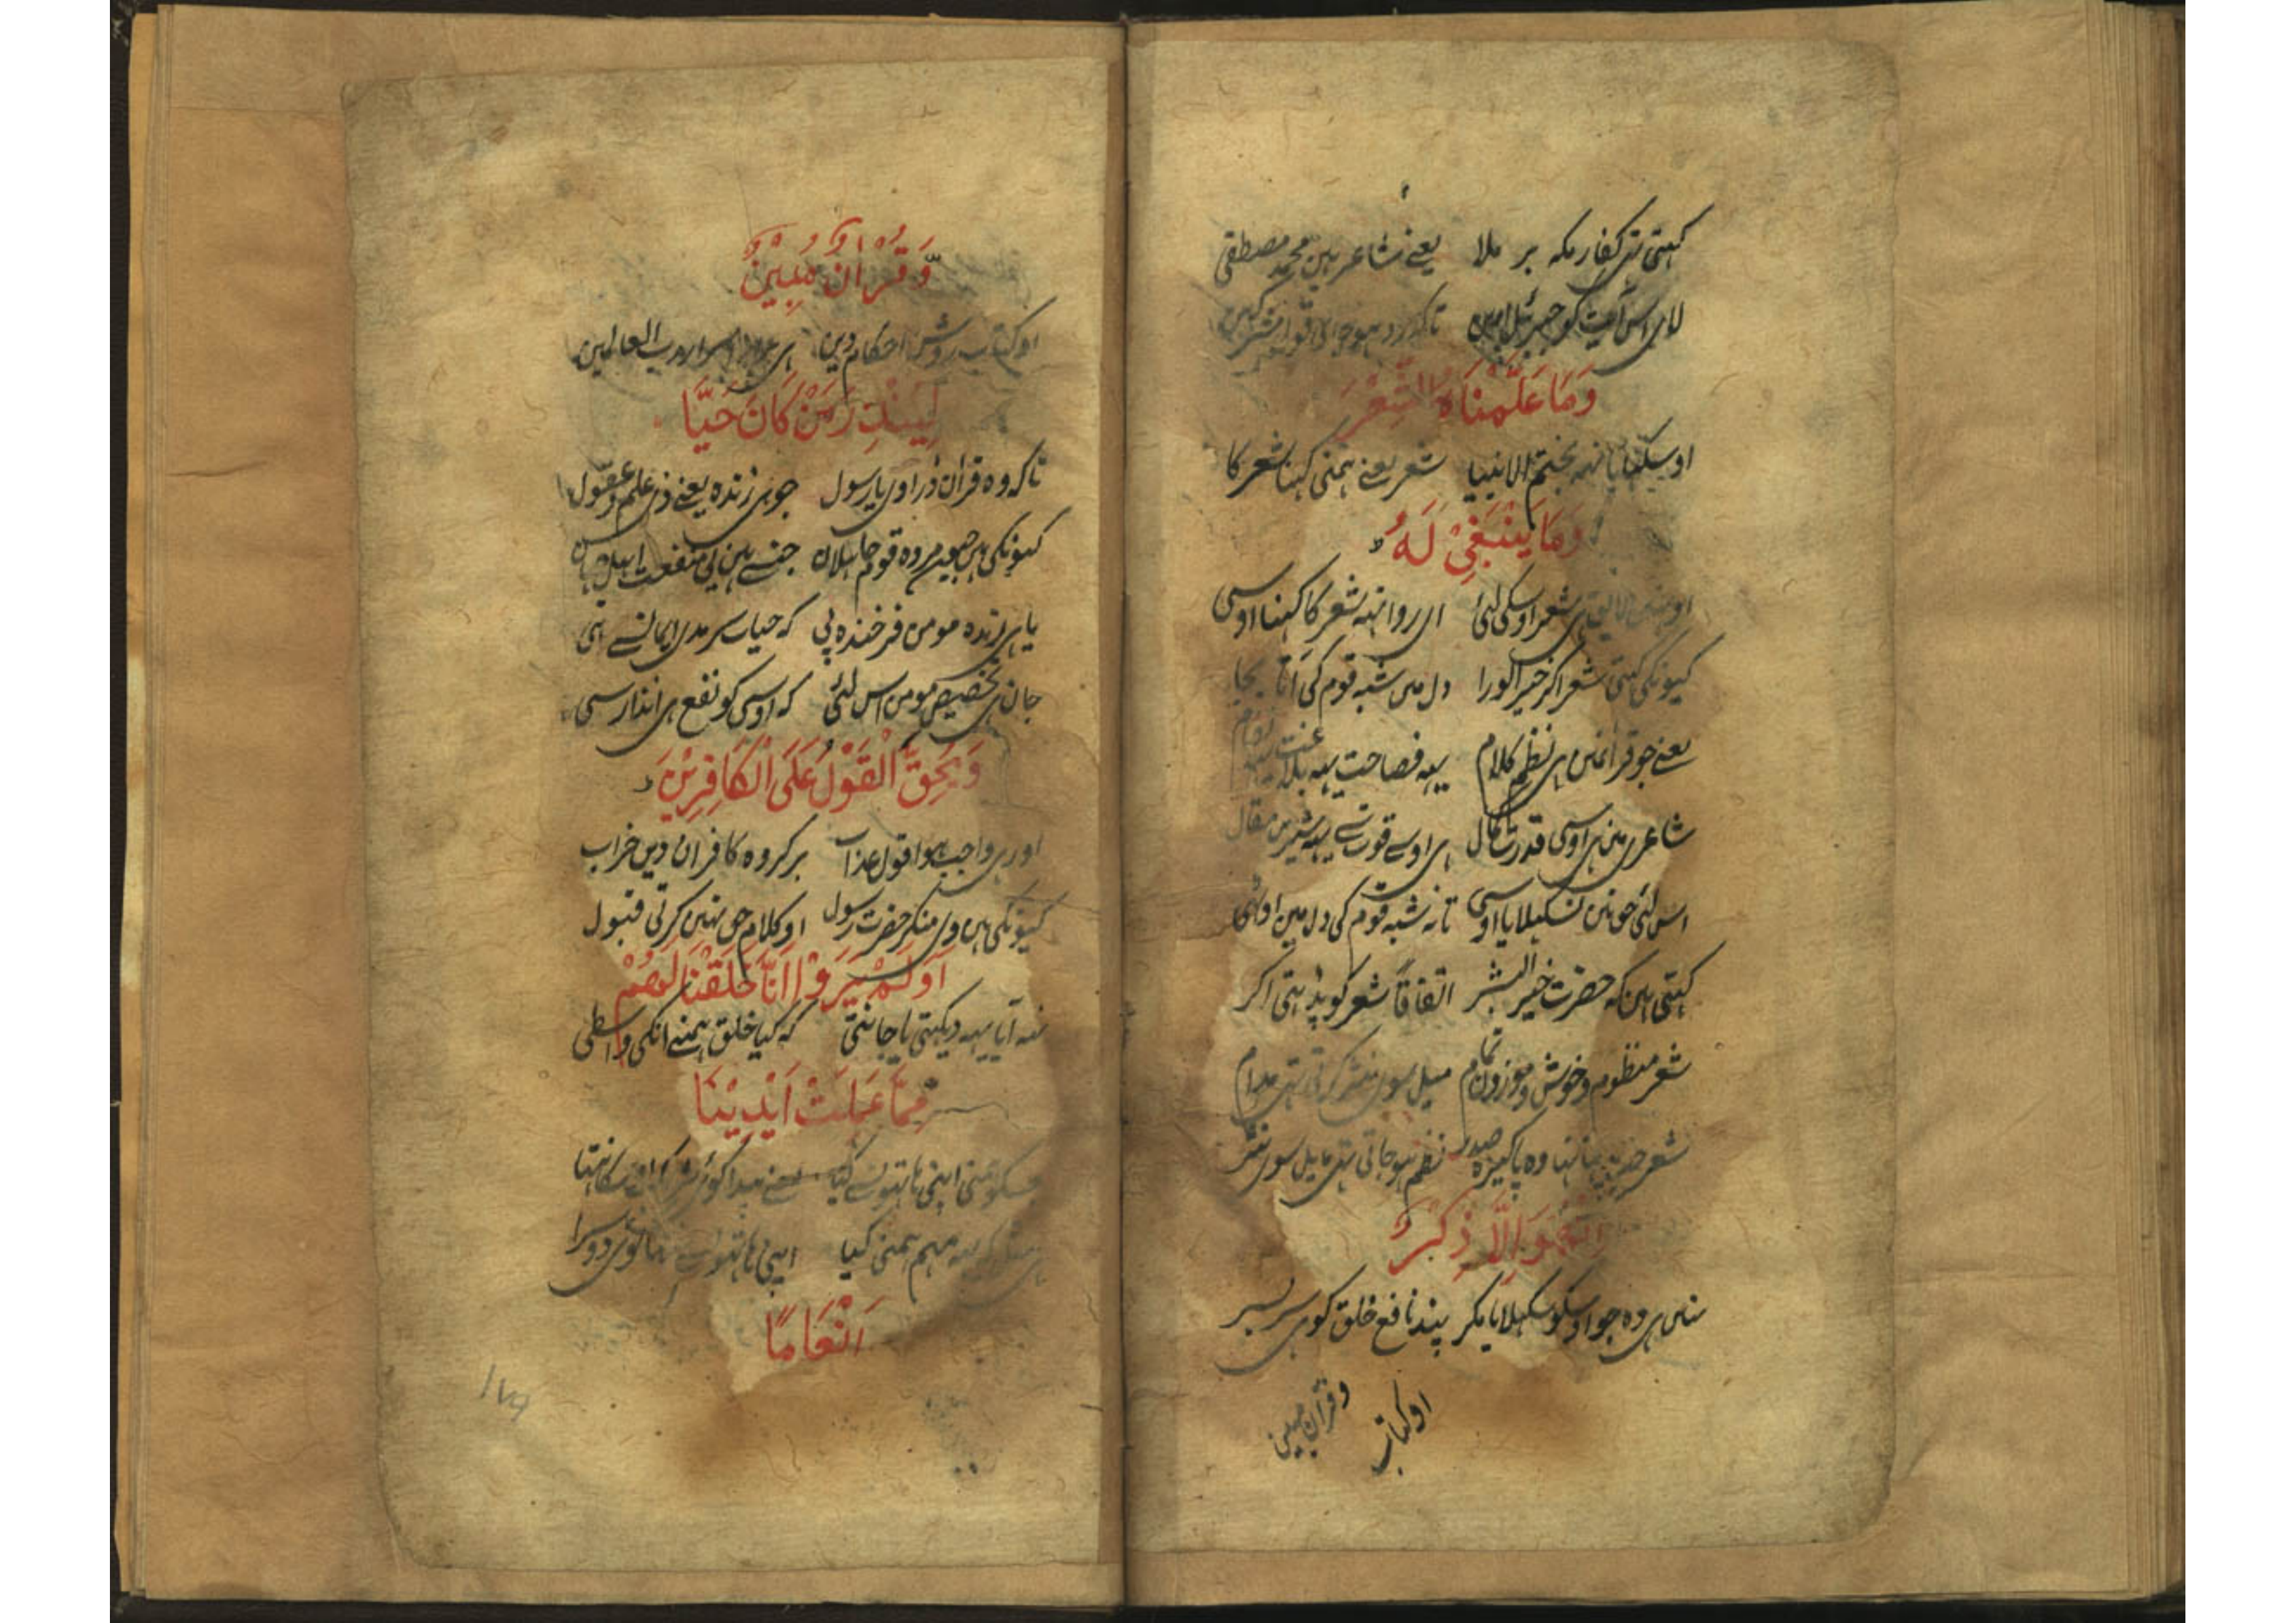 کہتی تہی کفار مکہ بر ملا یعنے شاعر ہین محمد مصطفی
لای اس آیت کو جبرئیل امین تاکہ رد ہوجای قول مشرکین
وَمَا عَلَّمْنَاهُ الشِّعْرَ
او سکہایا نہہ بختم الانبیا شعر یعنے ہمنی کہنا شعر کا
وَمَا يَنْبَغِيْ لَهُ
او نہین لایق ہی شعر اوسکی لئی ای روا نہہ شعر کا کہنا اوسی
کیونکی کہتی شعر اگر خیر الورا دل مین شبہ قوم کی آتا بجا
یعنے جو قرآنمین ہی نظم کلام یہہ فصاحت یہہ بلاغت
شاعری مین ہی اوسی قدرت کمال ہی اوسے قوت سے یہہ شیرین مقال
اس لئی حق نین نسکہلایا اوسی تا نہ شبہ قوم کی دل مین اوٹہی
کہتی ہین کہ حضرت خیر البشر اتفاقاً شعر کو پڑہتی اگر
شعر منظوم و خوش و موزون تمام میل سوی نثر کرتی تہی مدام
شعر وہ پاکیزہ صدر نظم ہوجاتی تہی مایل سوی نثر
اِنْ هُوَ اِلَّا ذِكْرٌ
نہین ہی وہ جو اوسکو سکہلایا مگر پند نافع خلق کو ہی سر بسر
او کتاب
وقرآن مبین
وَّقُرْاٰنٌ مُّبِيْنٌ
او کتاب روشن احکام دین ہی اسرار رب العالمین
لِيُنْذِرَ مَنْ كَانَ حَيًّا
تاکہ وہ قرآن ڈراوی یا رسول جو ہی زندہ یعنے ذی علم و عقول
کیونکی ہین جیون مردہ قوم جاہلان جنسے ہین بی منفعت اہل جہان
یا ہی زندہ مومن فرخندہ پی کہ حیات سرمدی ایمانسے ہی
جان ہی تخصیص مومن اس لئی کہ اوسی کو نفع ہی انذار سی
وَيَحِقَّ الْقَوْلُ عَلَى الْكَافِرِيْنَ
اور ہی واجب ہوا قول عذاب بر گروہ کافران دین خراب
کیونکی ہین وی منکر حضرت رسول او کلام حق نہین کرتی قبول
اَوَلَمْ يَرَوْا اَنَّا خَلَقْنَا لَهُمْ
نہہ آیا یہہ دیکہتی یا جانتی کہ کیا خلق ہمنے انکی واسطی
مِمَّا عَمِلَتْ اَيْدِيْنَا
جسکو ہمنی اپنی ہاتہونسے کیا یعنے پیدا کوئی
یہہ مہم ہمنی کیا اپنی ہاتہونسے نہ تہا کوئی دوسرا
اَنْعَامًا
۱۷۹